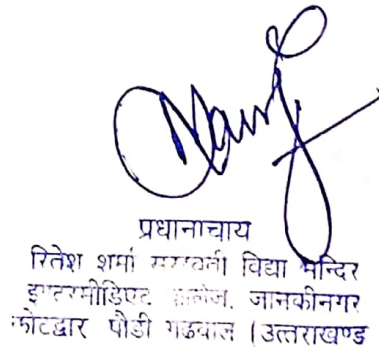 प्रधानाचाय
रितेश शर्मा सरस्वती विद्या मन्दिर
इण्टरमीडिएट कालेज, जानकीनगर
कोटद्वार पौडी गढवाल (उत्तराखण्ड